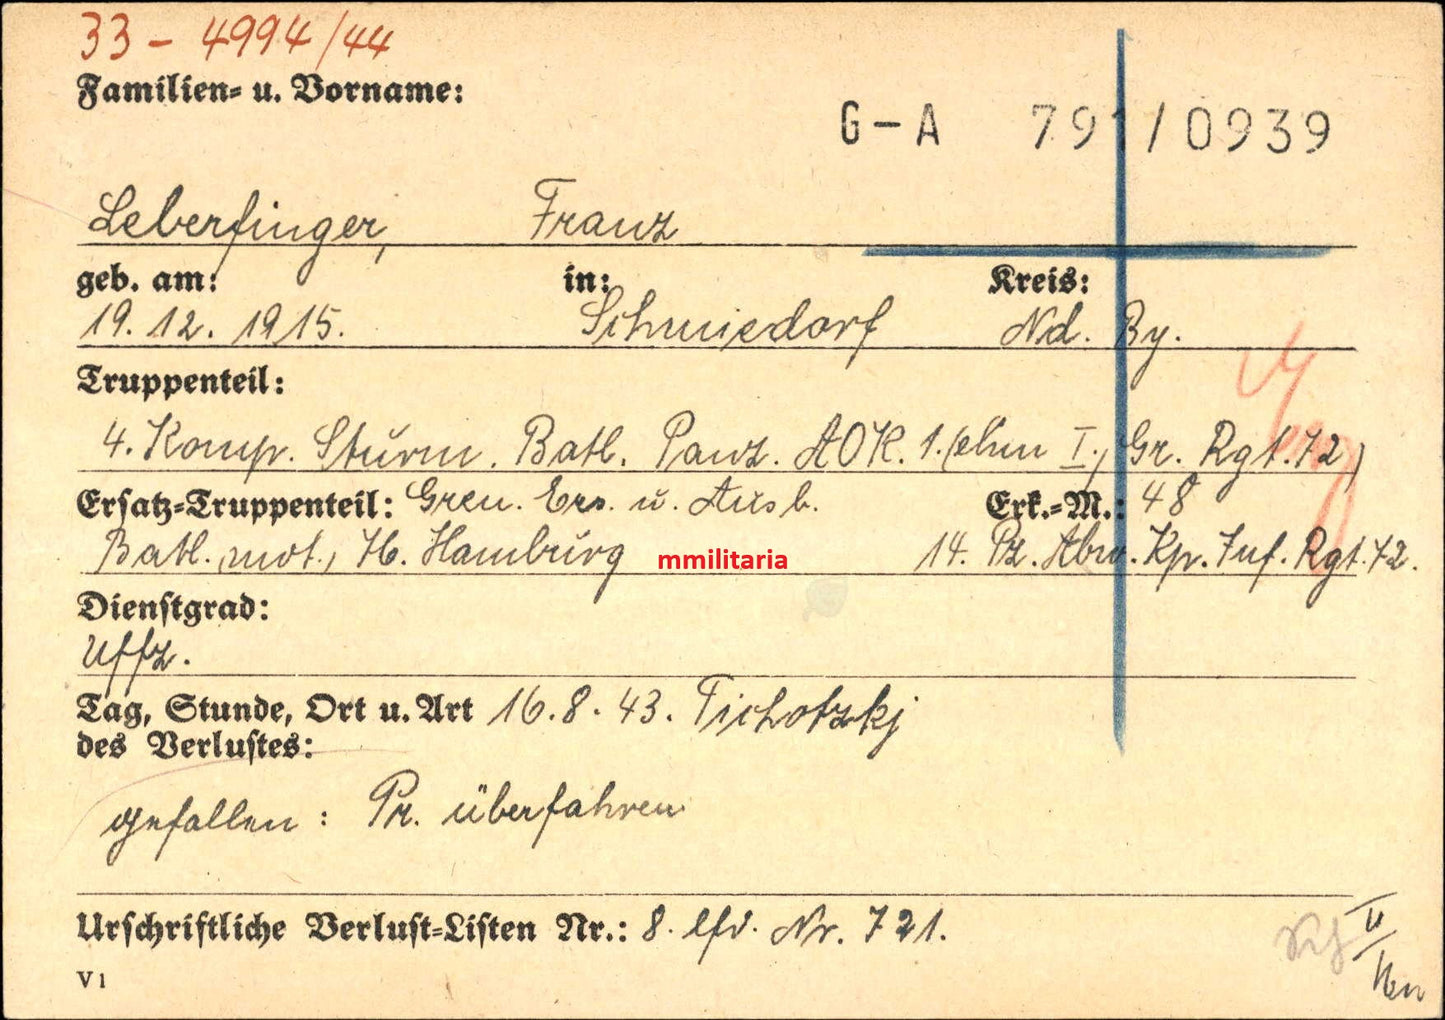 33 - 4994/44
Familien- u. Vorname:
G-A 791/0939
Leberfinger, Franz
geb. am: in: Kreis:
19. 12. 1915. Schmiedorf Nd. By.
Truppenteil:
4. Komp. Sturm. Batl. Panz. AOK. 1. (ehm I., Gr. Rgt. 72)
Ersatz-Truppenteil: Gren. Ers. u. Ausb. Erk.-M.: 48
Batl. mot., 76. Hamburg mmilitaria 14. Pz. Abw. Kp. Inf. Rgt. 72.
Dienstgrad:
Uffz.
Tag, Stunde, Ort u. Art 16. 8. 43. Tichotzkj
des Verlustes:
gefallen: Pz. überfahren
Urschriftliche Verlust-Listen Nr.: 8. lfd. Nr. 721.
V 1